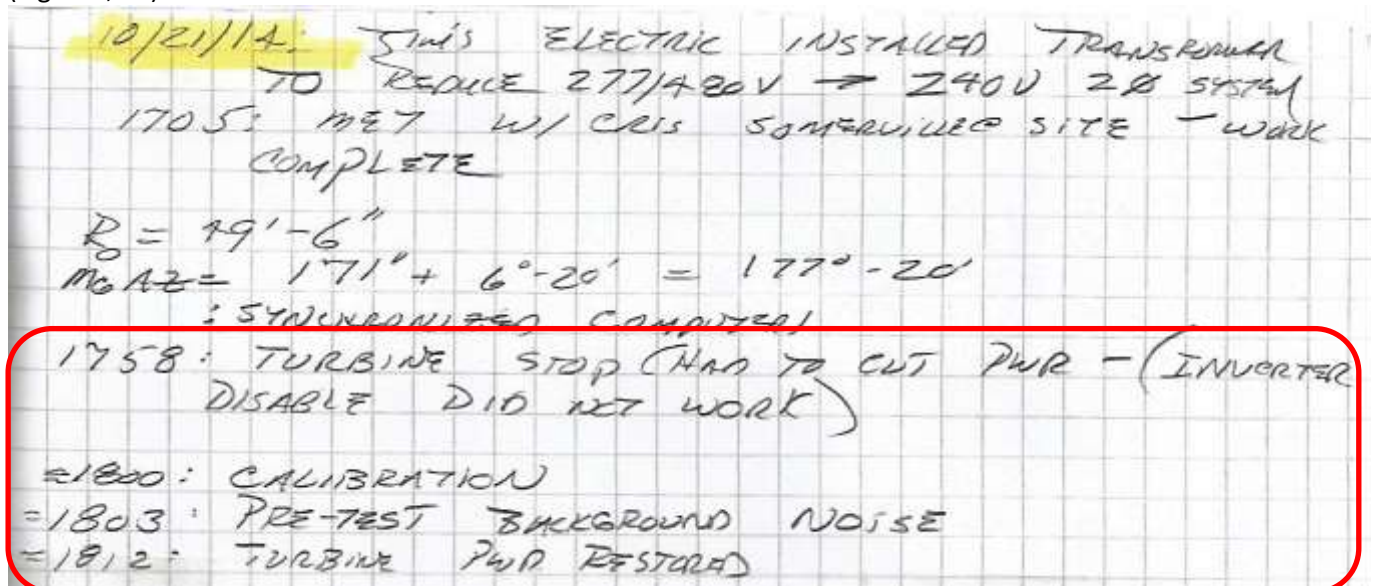 10/21/14: Jim's ELECTRIC INSTALLED TRANSFORMER
TO REDUCE 277/480V → 240V 2Ø SYSTEM
1705: MET W/ CRIS SOMERVILLE@ SITE - WORK
COMPLETE
R = 49'-6"
AZ= 171° + 6°-20' = 177°-20'
: SYNCHRONIZED COMPUTERS
1758: TURBINE STOP (HAD TO CUT PWR - (INVERTER
DISABLE DID NOT WORK)
≈1800: CALIBRATION
≈1803: PRE-TEST BACKGROUND NOISE
≈1812: TURBINE PWR RESTORED